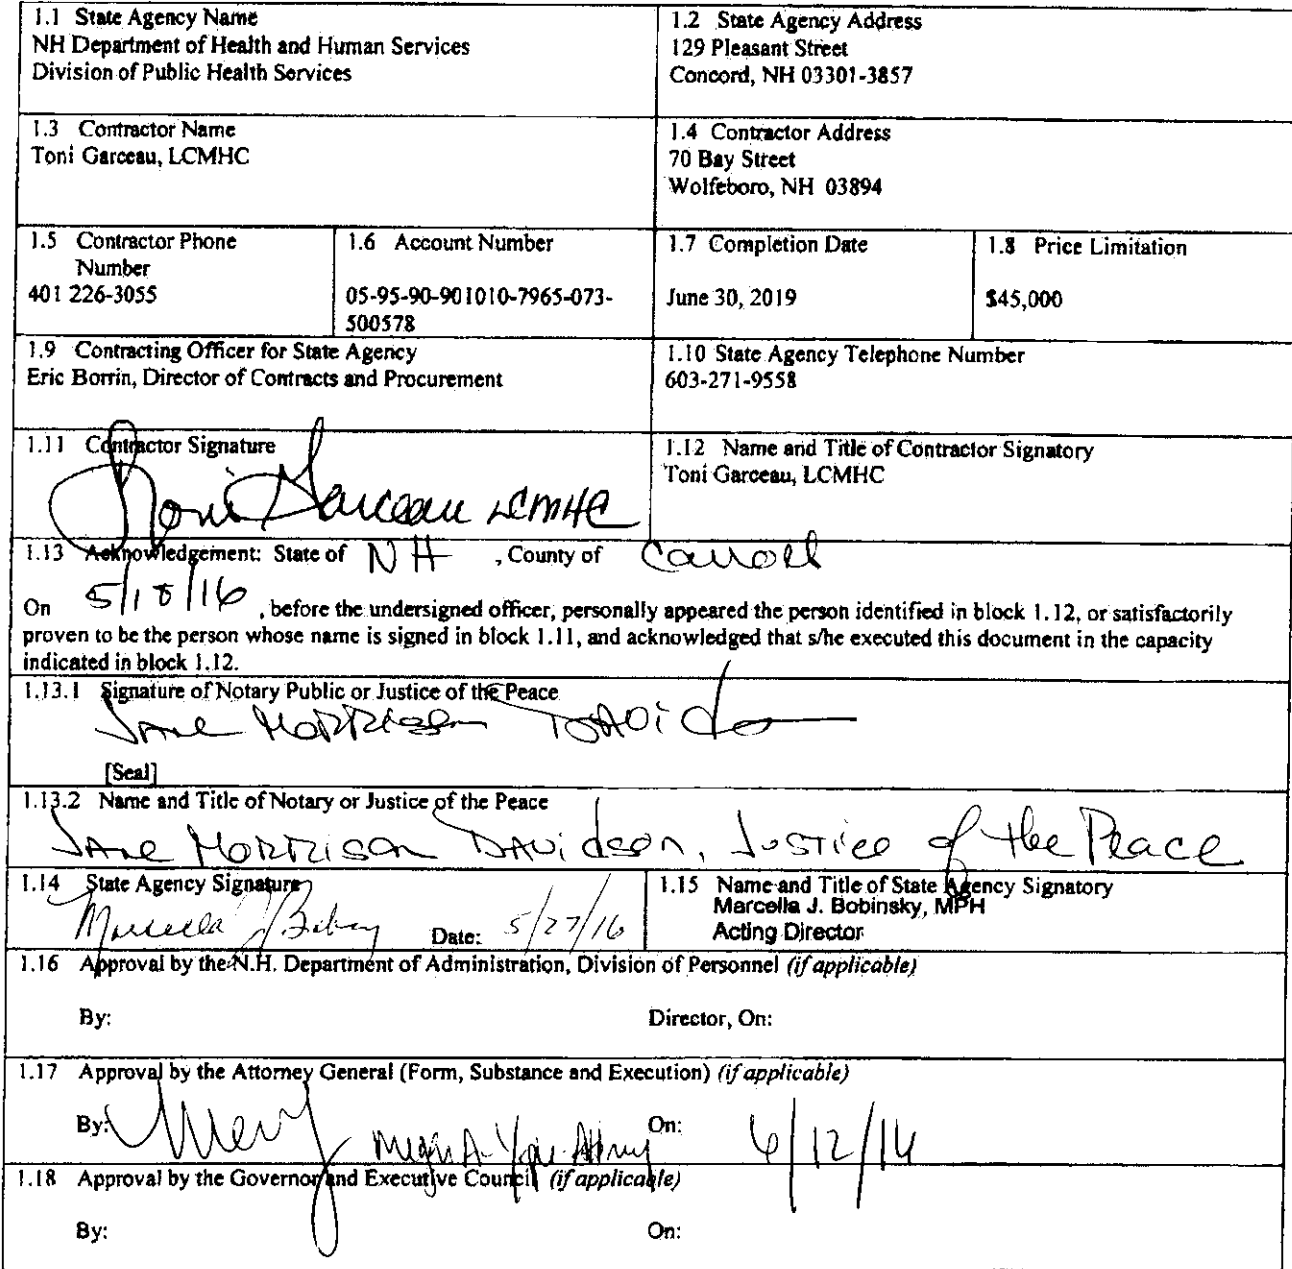 1.1 State Agency Name
NH Department of Health and Human Services
Division of Public Health Services
1.2 State Agency Address
129 Pleasant Street
Concord, NH 03301-3857
1.3 Contractor Name
Toni Garceau, LCMHC
1.4 Contractor Address
70 Bay Street
Wolfeboro, NH 03894
1.5 Contractor Phone
Number
401 226-3055
1.6 Account Number
05-95-90-901010-7965-073-
500578
1.7 Completion Date
June 30, 2019
1.8 Price Limitation
$45,000
1.9 Contracting Officer for State Agency
Eric Borrin, Director of Contracts and Procurement
1.10 State Agency Telephone Number
603-271-9558
1.11 Contractor Signature
Toni Garceau LCMHC
1.12 Name and Title of Contractor Signatory
Toni Garceau, LCMHC
1.13 Acknowledgement: State of NH , County of Carroll
On 5/18/16 , before the undersigned officer, personally appeared the person identified in block 1.12, or satisfactorily
proven to be the person whose name is signed in block 1.11, and acknowledged that s/he executed this document in the capacity
indicated in block 1.12.
1.13.1 Signature of Notary Public or Justice of the Peace
Jane Morrison
[Seal]
1.13.2 Name and Title of Notary or Justice of the Peace
Jane Morrison Davidson, Justice of the Peace
1.14 State Agency Signature
Marcella J Bobinsky Date: 5/27/16
1.15 Name and Title of State Agency Signatory
Marcella J. Bobinsky, MPH
Acting Director
1.16 Approval by the N.H. Department of Administration, Division of Personnel (if applicable)
By: Director, On:
1.17 Approval by the Attorney General (Form, Substance and Execution) (if applicable)
By: On: 6/12/16
1.18 Approval by the Governor and Executive Council (if applicable)
By: On: